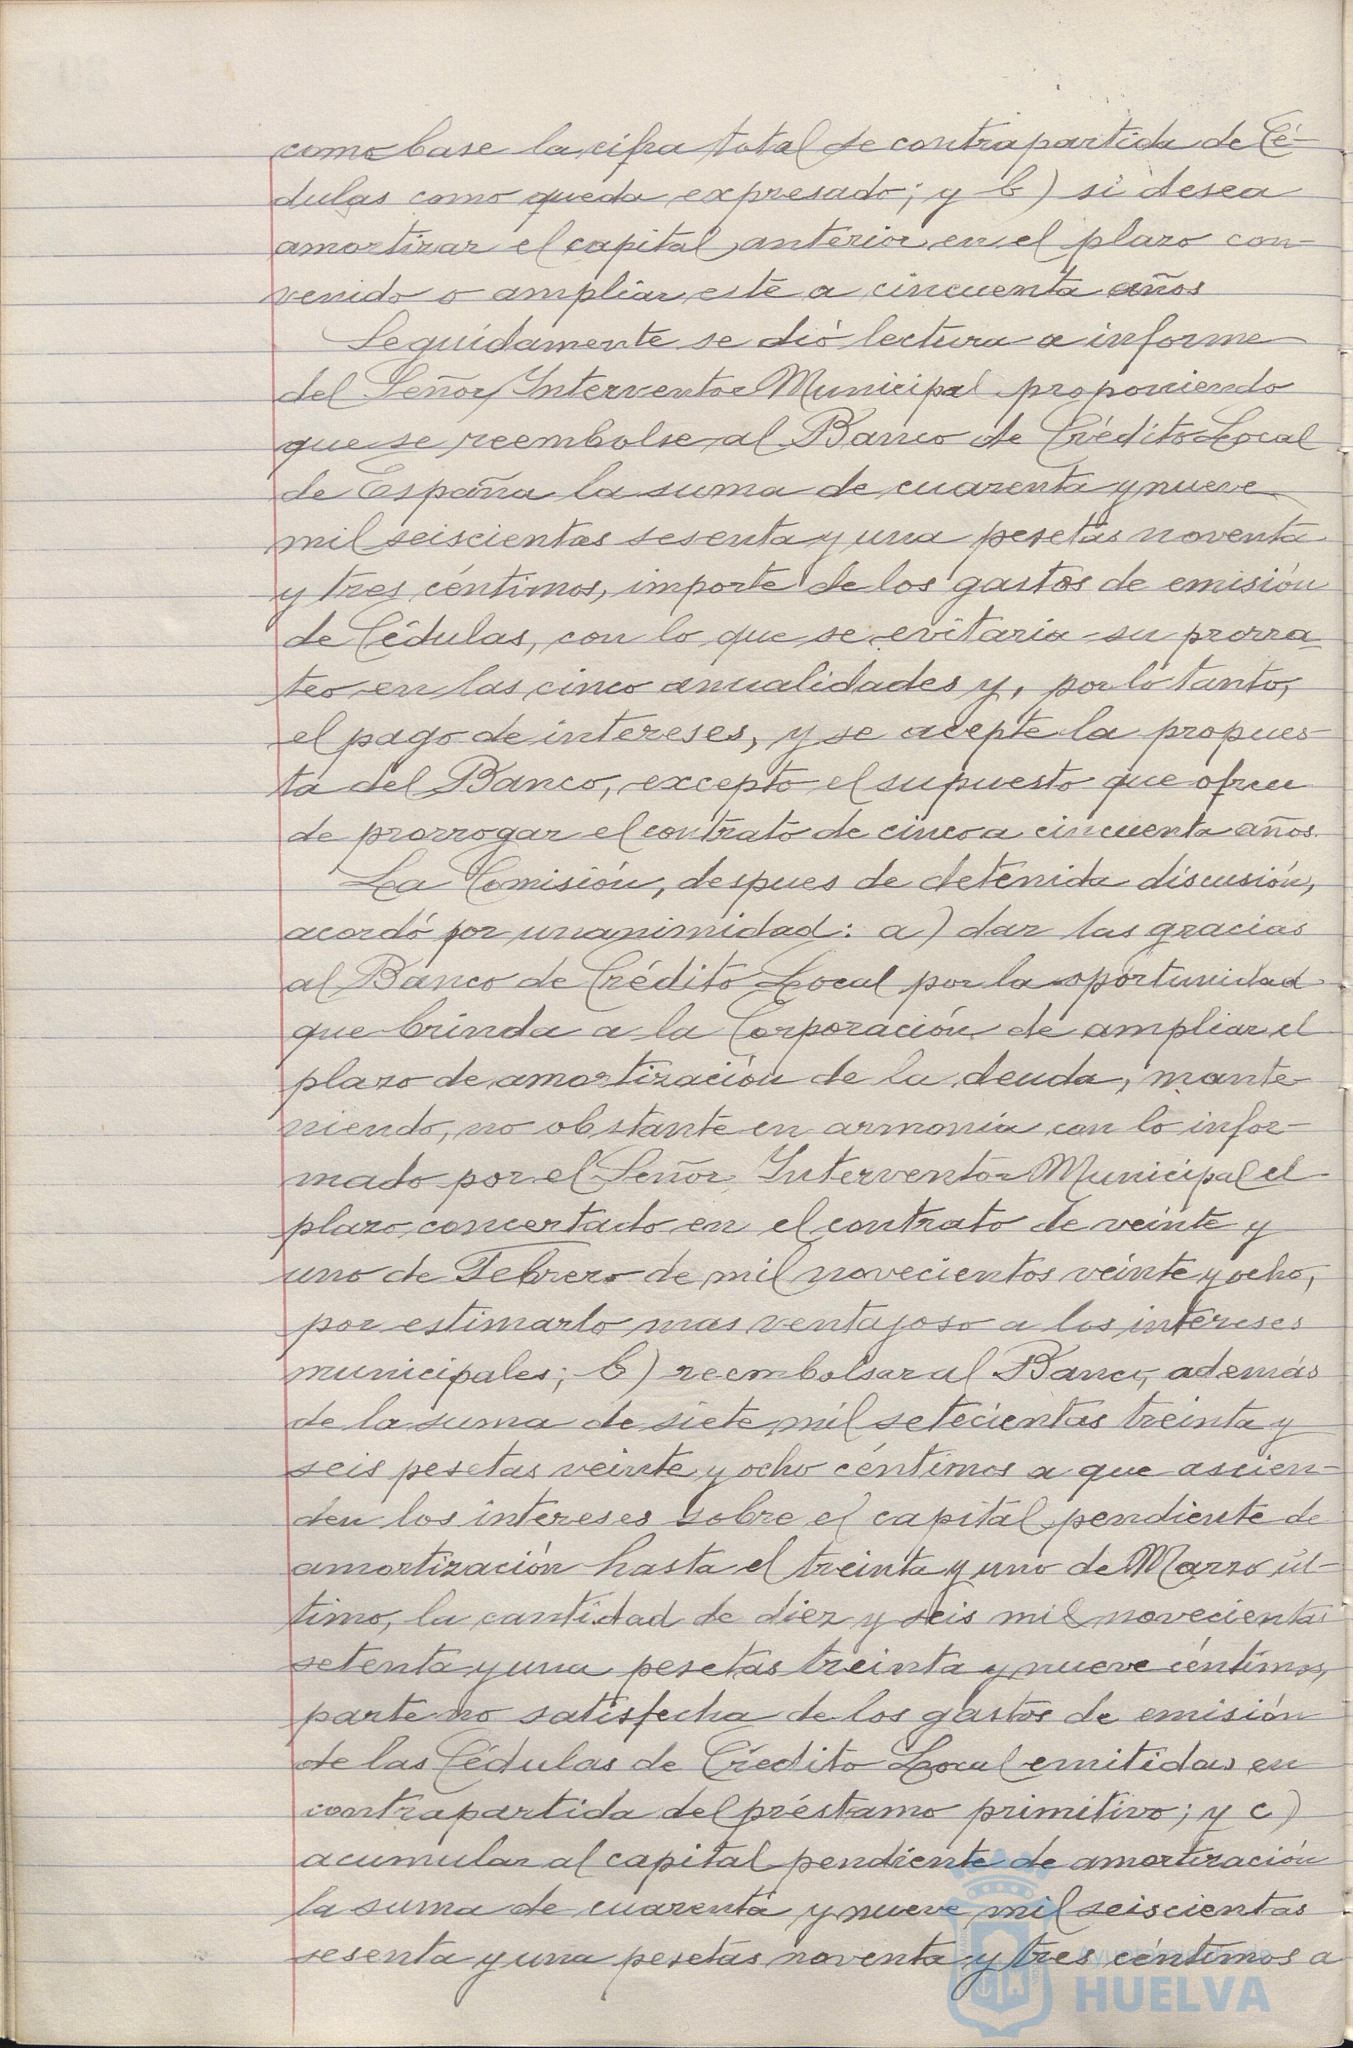 como base la cifra total de contrapartida de Cé-
dulas como queda expresado; y b) si desea
amortizar el capital anterior en el plazo con-
venido o ampliar este a cincuenta años
Seguidamente se dió lectura a informe
del Señor Interventor Municipal proponiendo
que se reembolse al Banco de Crédito Local
de España la suma de cuarenta y nueve
mil seiscientas sesenta y una pesetas noventa
y tres céntimos, importe de los gastos de emisión
de Cédulas, con lo que se evitaria su prorra-
teo en las cinco anualidades y, por lo tanto,
el pago de intereses, y se acepte la propues-
ta del Banco, excepto el supuesto que ofrece
de prorrogar el contrato de cinco a cincuenta años.
La Comisión, despues de detenida discusión,
acordó por unanimidad: a) dar las gracias
al Banco de Crédito Local por la oportunidad
que brinda a la Corporación de ampliar el
plazo de amortización de la deuda, mante-
niendo, no obstante en armonia con lo infor-
mado por el Señor Interventor Municipal el
plazo concertado en el contrato de veinte y
uno de Febrero de mil novecientos veinte y ocho,
por estimarlo mas ventajoso a los intereses
municipales; b) reembolsar al Banco, además
de la suma de siete mil setecientas treinta y
seis pesetas veinte y ocho céntimos a que ascien-
den los intereses sobre el capital pendiente de
amortización hasta el treinta y uno de Marzo úl-
timo, la cantidad de diez y seis mil novecientas
setenta y una pesetas treinta y nueve céntimos,
parte no satisfecha de los gastos de emisión
de las Cédulas de Crédito Local emitidas en
contrapartida del préstamo primitivo; y c)
acumular al capital pendiente de amortización
la suma de cuarenta y nueve mil seiscientas
sesenta y una pesetas noventa y tres céntimos a
Ayuntamiento de
HUELVA